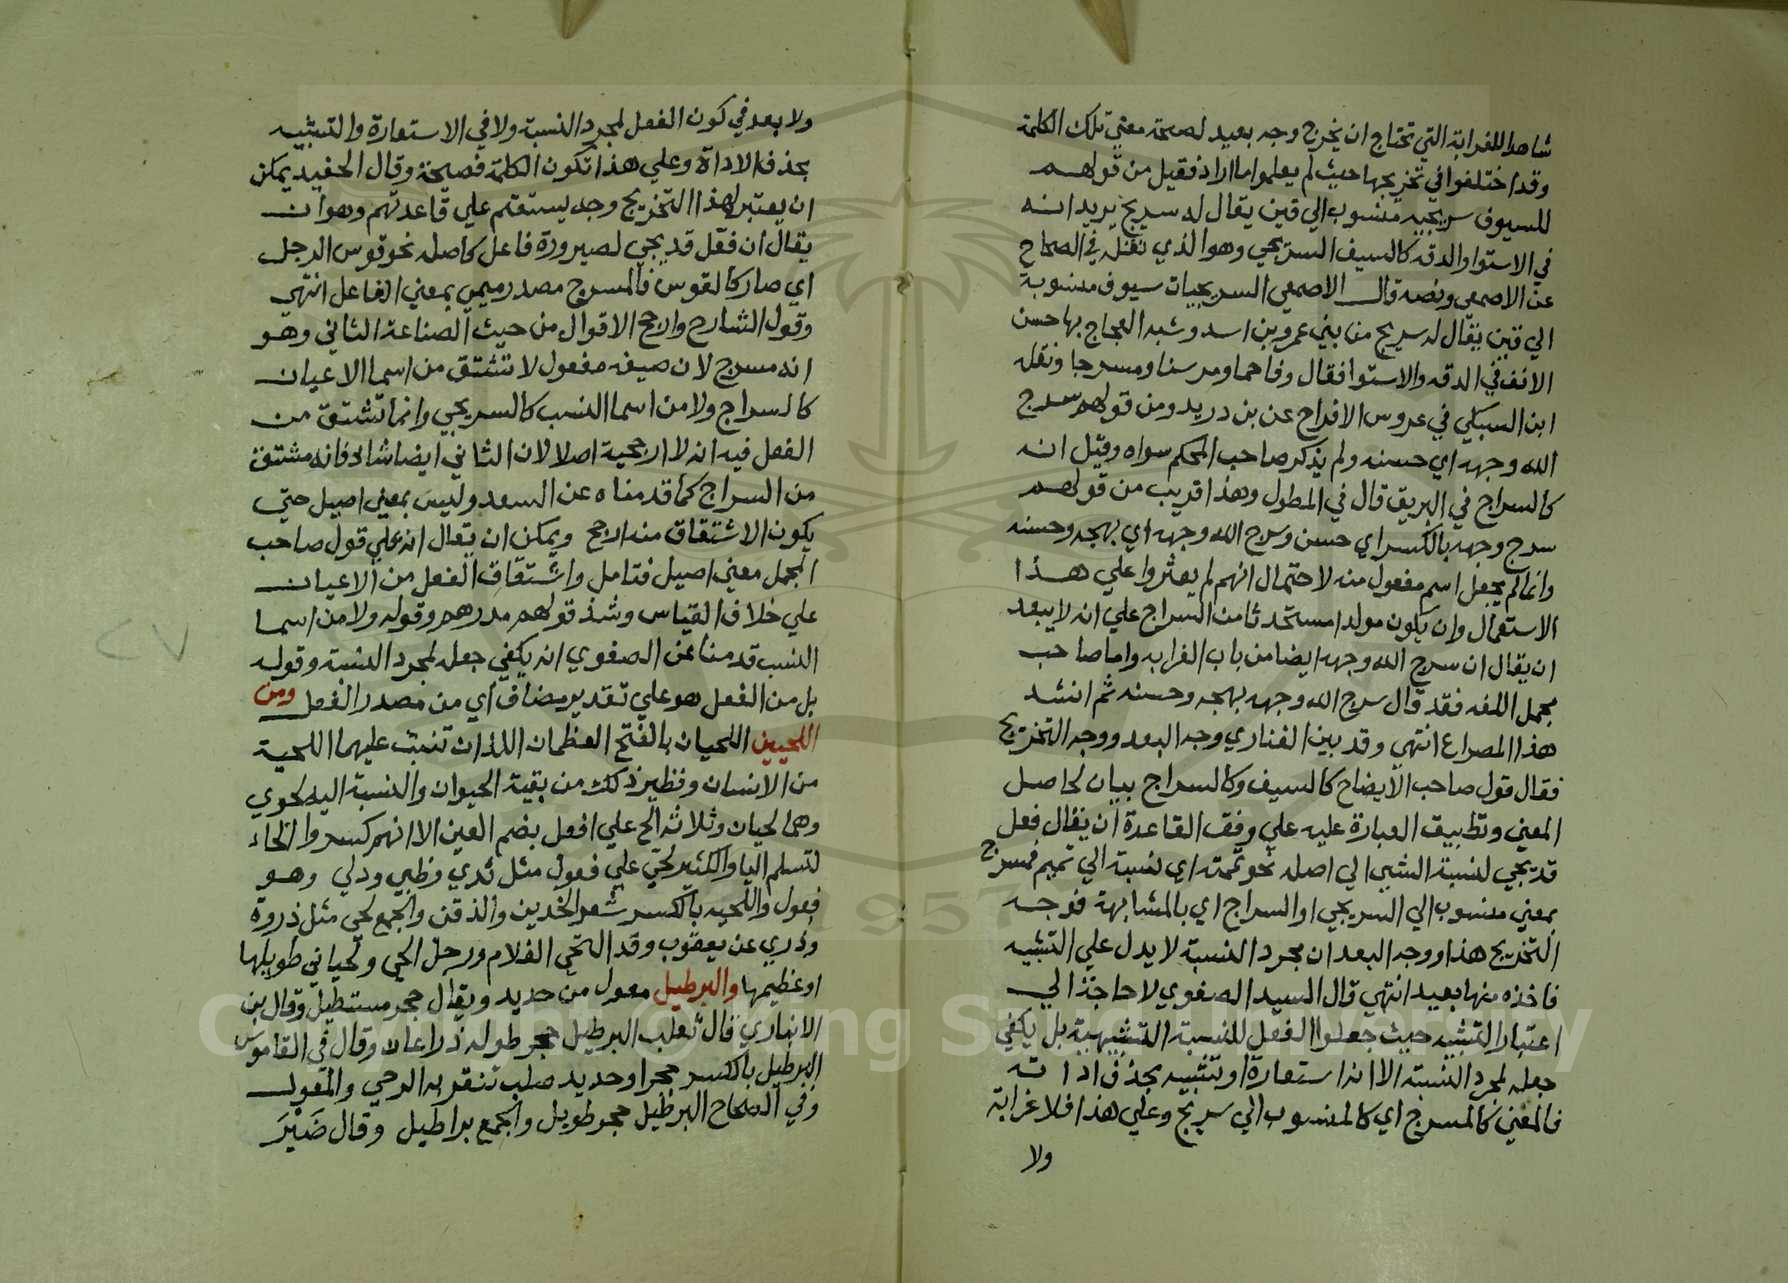 شاهد اللغرابة التي تحتاج ان يخرج وجه بعيد لصحة معني تلك الكلمة
وقد اختلفوا في تخريجها حيث لم يعلموا ما اراد فقيل من قولهم
للسيوف سريجيه منسوب الي قين يقال له سريج يريد انه
في الاستوا والدقه كالسيف السريجي وهو الذي نقله في الصحاح
عن الاصمعي ونصه قال الاصمعي السريجيات سيوف منسوبة
الي قين يقال له سريج من بني عمرو بن اسد وشبه العجاج بها حسن
الانف في الدقه والاستوا فقال وفاحما ومرسنا ومسرجا ونقله
ابن السبكي في عروس الافراح عن بن دريد ومن قولهم سرج
الله وجهه اي حسنه ولم يذكر صاحب المحكم سواه وقيل انه
كالسراج في البريق قال في المطول وهذا قريب من قولهم
سرج وجهه بالكسر اي حسن وسرج الله وجهه اي بهجه وحسنه
وانما لم يجعل اسم مفعول منه لاحتمال انهم لم يعثروا علي هذا
الاستعمال وان يكون مولدا مستحدثا من السراج علي انه لا يبعد
ان يقال ان سرج الله وجهه ايضا من باب الغرابه واما صاحب
مجمل اللغه فقد قال سرج الله وجهه بهجه وحسنه ثم انشد
هذا المصراع انتهي وقد بين الفناري وجه البعد ووجه التخريج
فقال قول صاحب الايضاح كالسيف وكالسراج بيان لحاصل
المعني وتطبيق العبارة عليه علي وفق القاعدة ان يقال فعل
قد يجي لنسبة الشي الي اصله نحو تممته اي نسبة الي تميم فمسرج
بمعني منسوب الي السريجي او السراج اي بالمشابهة فوجه
التخريج هذا ووجه البعد ان مجرد النسبة لا يدل علي التشبيه
فاخذه منها بعيد انتهي قال السيد الصفوي لا حاجة الي
اعتبار التشبيه حيث جعلوا الفعل للنسبة التشبيهية بل يكفي
جعله لمجرد النسبة الا انه استعارة او تشبيه بحذف اداته
فالمعني كالمسرج اي كالمنسوب الي سريج وعلي هذا فلا غرابة
ولا
ولا بعد في كون الفعل لمجرد النسبة ولا في الاستعارة والتشبيه
بحذف الاداة وعلي هذا تكون الكلمة فصيحة وقال الحفيد يمكن
ان يعتبر لهذا التخريج وجه يستقم علي قاعدتهم وهو ان
يقال ان فعل قد يجي لصيرورة فاعل كاصله نحو قوس الرجل
اي صار كالقوس فالمسرج مصدر ميمي بمعني الفاعل انتهي
وقول الشارح وارجح الاقوال من حيث الصناعة الثاني وهو
انه مسرج لان صيغه مفعول لا تشتق من اسما الاعيان
كالسراج ولا من اسما النسب كالسريجي وانما تشتق من
الفعل فيه انه لا ارجحية اصلا لان الثاني ايضا شاذ فانه مشتق
من السراج كما قدمناه عن السعد وليس بمعني اصيل حتي
يكون الاشتقاق منه ارجح ويمكن ان يقال انه علي قول صاحب
المجمل معني اصيل فتامل واشتقاق الفعل من الاعيان
علي خلاف القياس وشذ قولهم مدرهم وقوله ولا من اسما
النسب قدمنا عن الصفوي انه يكفي جعله لمجرد النسبة وقوله
بل من الفعل هو علي تقدير مضاف اي من مصدر الفعل ومن
اللحيين اللحيان بالفتح العظمان اللذان تنبت عليهما اللحية
من الانسان ونظير ذلك من بقية الحيوان والنسبة اليه لحوي
وهما لحيان وثلاثة الح علي افعل بضم العين الا انهم كسروا الحاء
لتسلم اليا والكثير لحي علي فعول مثل ثدي وظبي ودلي وهو
فعول واللحيه بالكسر شعر الخدين والذقن والجمع لحي مثل ذروة
وذري عن يعقوب وقد التحي الغلام ورجل الحي ولحياني طويلها
او عظيمها والبرطيل معول من حديد ويقال حجر مستطيل وقال بن
الانباري قال ثعلب البرطيل حجر طوله ذراعان وقال في القاموس
البرطيل بالكسر حجر او حديد صلب تنقر به الرحي والمعول
وفي الصحاح البرطيل حجر طويل والجمع براطيل وقال ضَبَّرَ
٢٧
Copyright © King Saud University
1957